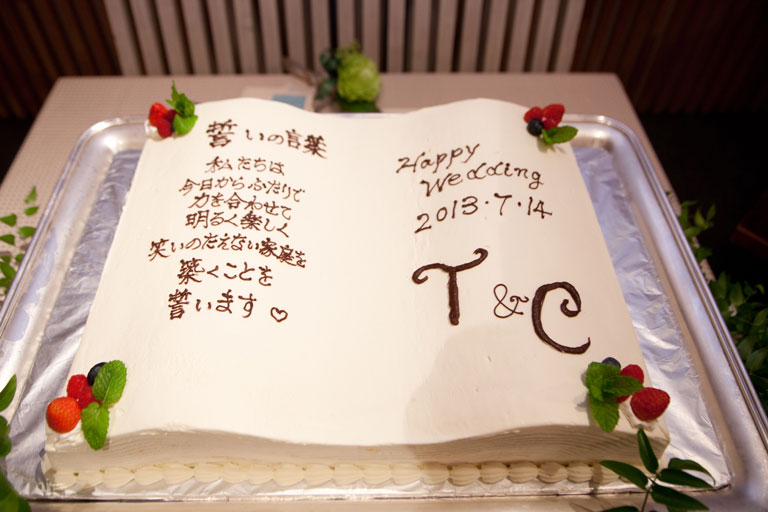 誓いの言葉
私たちは
今日からふたりで
力を合わせて
明るく楽しく
笑いのたえない家庭を
築くことを
誓います♡
Happy
Wedding
2013・7・14
T & C